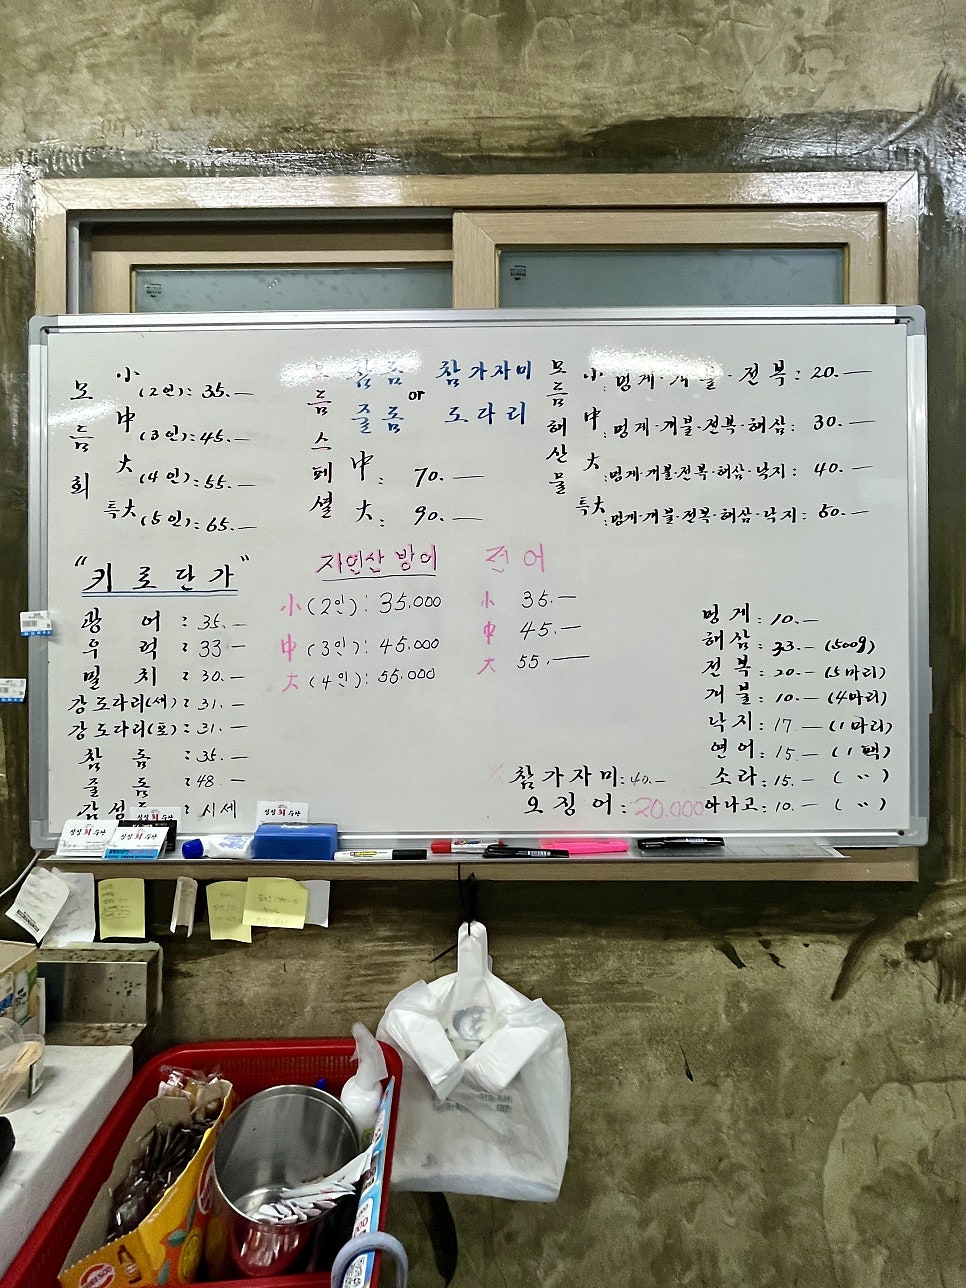 모듬회
小 (2인): 35.—
中 (3인): 45.—
大 (4인): 55.—
특大 (5인): 65.—
모듬스페셜
참돔 or 참가자미
줄돔 도다리
中: 70.—
大: 90.—
모듬해산물
小: 멍게·개불·전복: 20.—
中: 멍게·개불·전복·해삼: 30.—
大: 멍게·개불·전복·해삼·낙지: 40.—
특大: 멍게·개불·전복·해삼·낙지: 50.—
"키로단가"
광어: 35.—
우럭: 33—
밀치: 30.—
강도다리(세): 31.—
강도다리(포): 31.—
참돔: 35.—
줄돔: 48.—
감성돔: 시세
자연산 방어
小 (2인): 35.000
中 (3인): 45.000
大 (4인): 55.000
전어
小 35.—
中 45.—
大 55.—
멍게: 10.—
해삼: 33.— (500g)
전복: 20.— (5마리)
개불: 10.— (4마리)
낙지: 17 — (1마리)
연어: 15.— (1팩)
소라: 15.— ( 〃 )
아나고: 10.— ( 〃 )
※ 참가자미: 40.—
오징어: 20.000
싱싱회수산
싱싱회수산
싱싱회수산
싱싱회수산